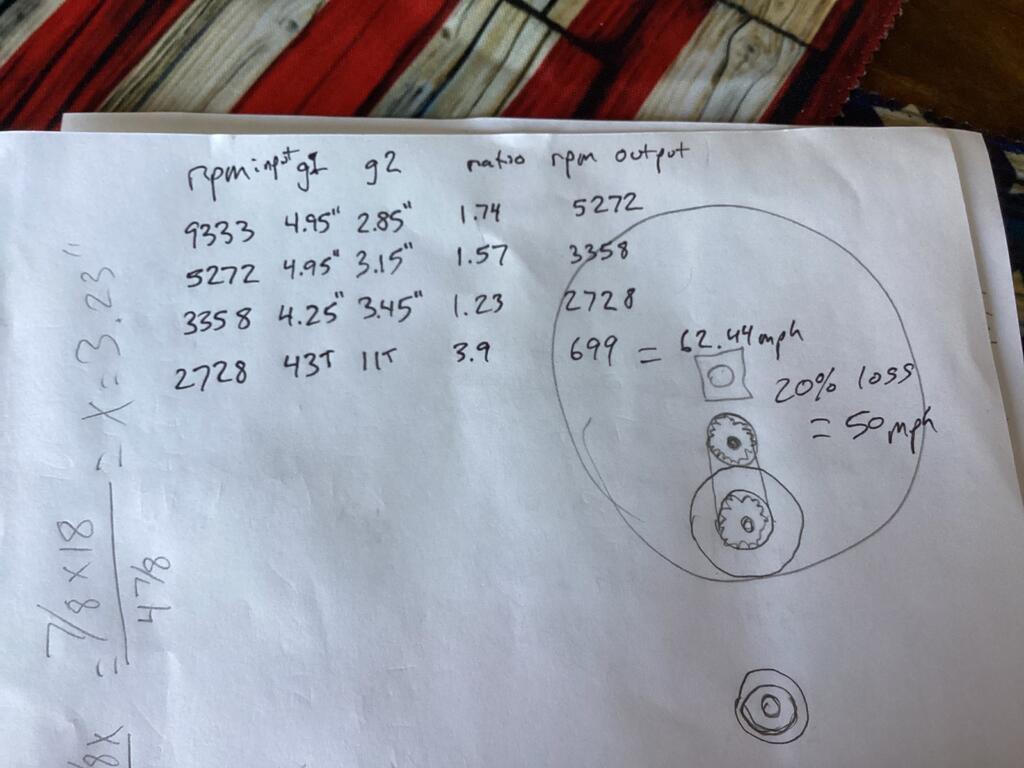 rpm input g1 g2 ratio rpm output
9333 4.95" 2.85" 1.74 5272
5272 4.95" 3.15" 1.57 3358
3358 4.25" 3.45" 1.23 2728
2728 43T 11T 3.9 699 = 62.44mph
20% loss
= 50 mph
/8x = 7/8 x 18 / 4 7/8 = X = 3.23"